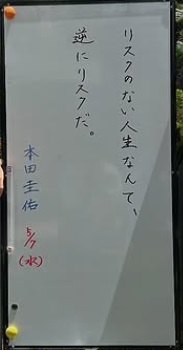 リスクのない人生なんて、
逆にリスクだ。
本田圭佑
5/7
(水)